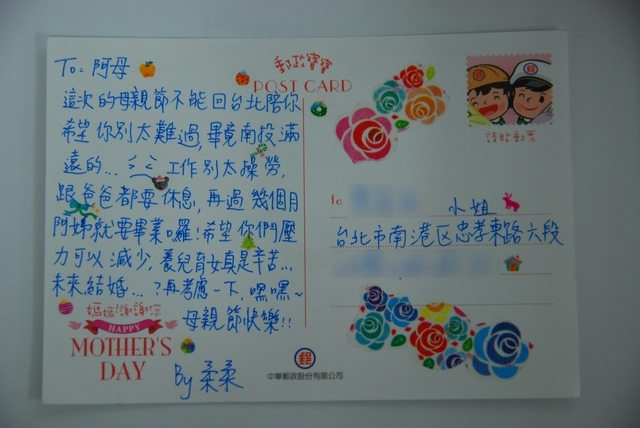 To: 阿母
這次的母親節不能回台北陪你
希望你別太難過,畢竟南投滿
遠的... 工作別太操勞,
跟爸爸都要休息,再過幾個月
門姊就要畢業囉!希望你們壓
力可以減少,養兒育女真是辛苦...
未來結婚...?再考慮一下,嘿嘿~
母親節快樂!!
By 柔柔
媽媽!謝謝您
HAPPY
MOTHER'S
DAY
郵政寶寶
POST CARD
請貼郵票
to 小姐
台北市南港区忠孝東路六段
中華郵政股份有限公司